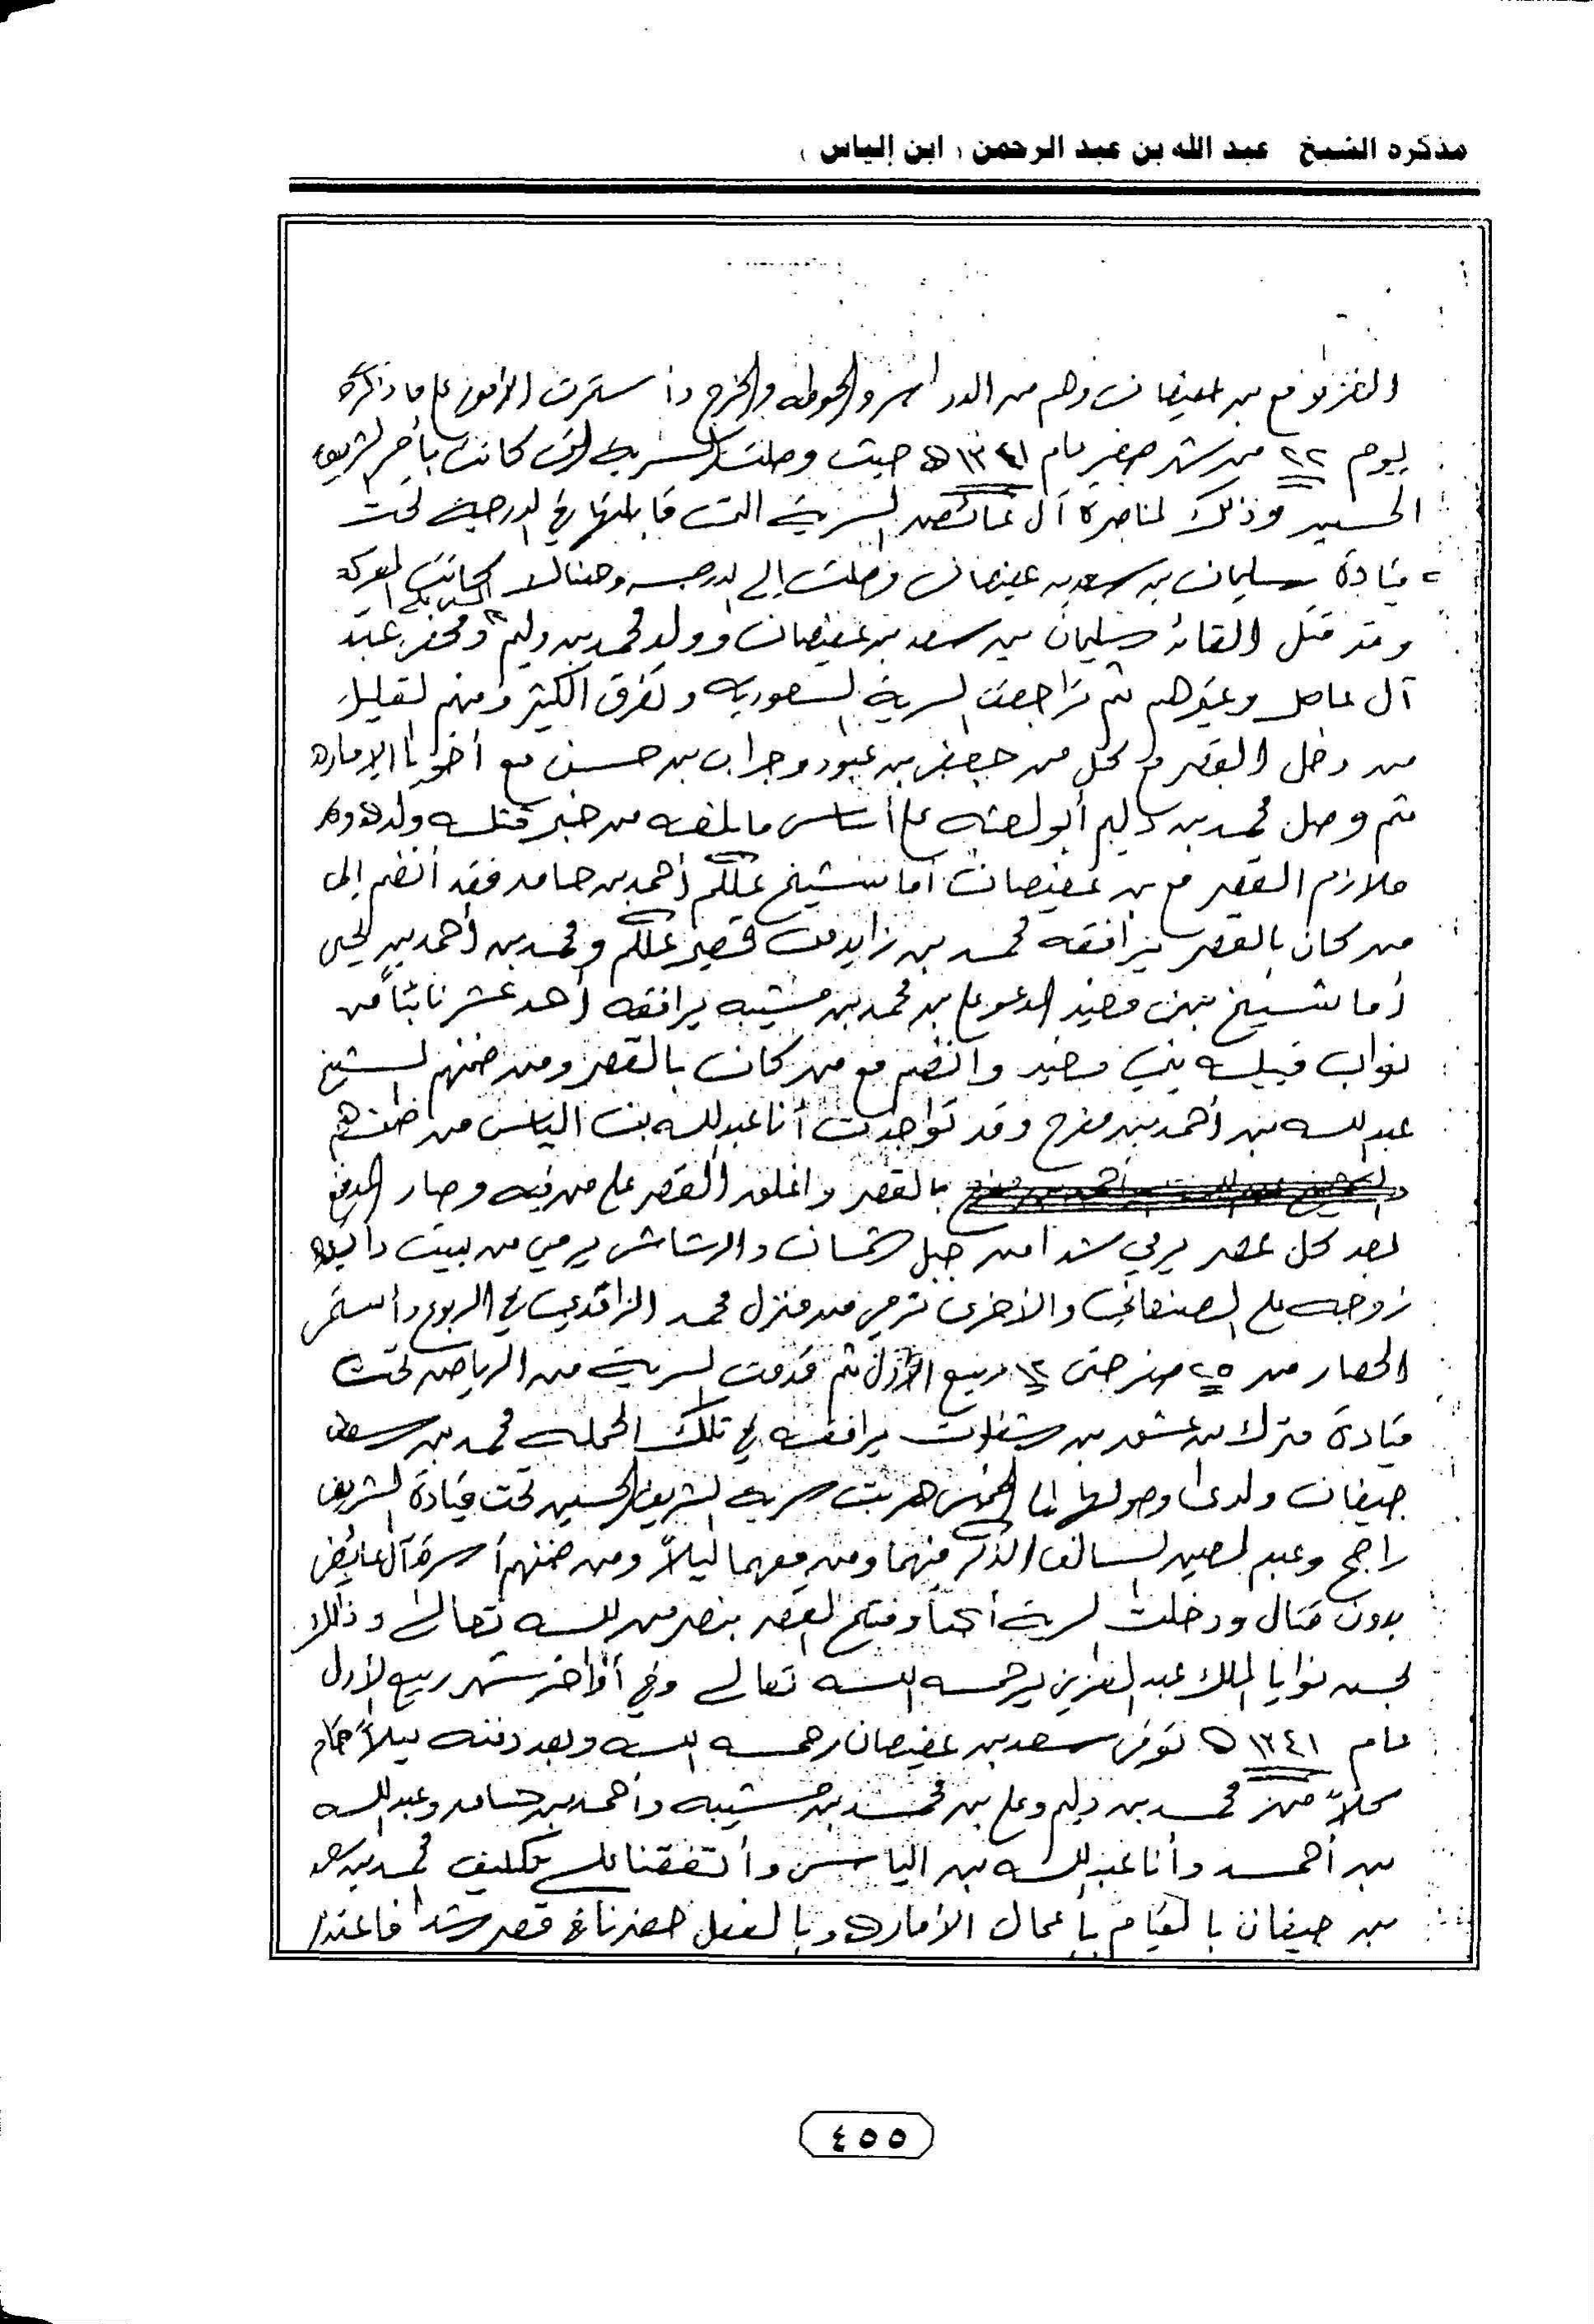 مذكرة الشيخ عبد الله بن عبد الرحمن ( ابن إلياس )
الغزو مع بن عفيصان وهم من الدواسر والحوطه والخرج وأستمرت الأمور على ما ذكره
يوم ٢٢ من شهر صفر عام ١٣٤١ه حيث وصلت السريه التي كانت بأمر الشريف
الحسين وذلك لمناصرة آل عائض السرية التي قابلتها في الدرجية تحت
قيادة سليمان بن سعد بن عفيصان وصلت إلى الدرجيه وهنالك كانت المعركة
وقد قتل القائد سليمان بن سعد بن عفيصان وولد محمد بن دليم ومحفر عبد
آل عاصل وغيرهم ثم تراجعت السرية السعوديه وتفرق الكثير ومنهم القليل
من دخل القصر مع كل من جعفر بن عبود وجراب بن حسين مع أخويا الإماره
ثم وصل محمد بن دليم أبو لعثه على أساس ما بلغه من خبر قتلة ولده وهو
ملازم القصر مع بن عفيصان أما شيخ علكم أحمد بن حامد فقد أنضم إلى
من كان بالقصر يرافقه محمد بن زايد من قصير علكم ومحمد بن أحمد بن لحي
أما شيخ بني مغيد المدعو علي بن محمد بن مشيبه يرافقه أحد عشر نائباً من
نواب قبيلة بني مغيد وانضم مع من كان بالقصر ومن ضمنهم الشيخ
عبدالله بن أحمد بن مفرح وقد تواجدت أنا عبدالله بن الياس من ضمنهم
بالقصر واغلق القصر على من فيه وصار المدفع
بعد كل عصر يرمي شدا من جبل شمسان والرشاش يرمي من بيت
زوجه علي الصنعاني والأخرى ترمي من منزل محمد الزاقدي في الربوع وأستمر
الحصار من ٢٥ صفر حتى ١٢ ربيع الأول ثم قدمت السرية من الرياض تحت
قيادة مترك بن عشق بن شفلوت يرافقه في تلك الحمله محمد بن سعد
ضيفان ولدى وصولها إلى الخميس هربت سرية الشريف الحسين تحت قيادة الشريف
راجح وعبد المعين السالف الذكر منهما ومن معهما ليلاً ومن ضمنهم أسرة آل عايض
بدون قتال ودخلت السرية أبها وفتح القصر بنصر من الله تعالى وذلك
لحسن نوايا الملك عبدالعزيز يرحمه الله تعالى وفي أواخر شهر ربيع الأول
عام ١٣٤١ه توفي سعد بن عفيصان رحمه الله وبعد دفنه ليلاً قام
كلاً من محمد بن دليم وعلي بن محمد بن مشيبه وأحمد بن حامد وعبدالله
بن أحمد وأنا عبدالله بن الياس وأتفقنا على تكليف محمد بن سعد
بن ضيفان بالقيام بأعمال الأماره وبالفعل حضرنا في قصر شدا فاعتذر
٤٥٥